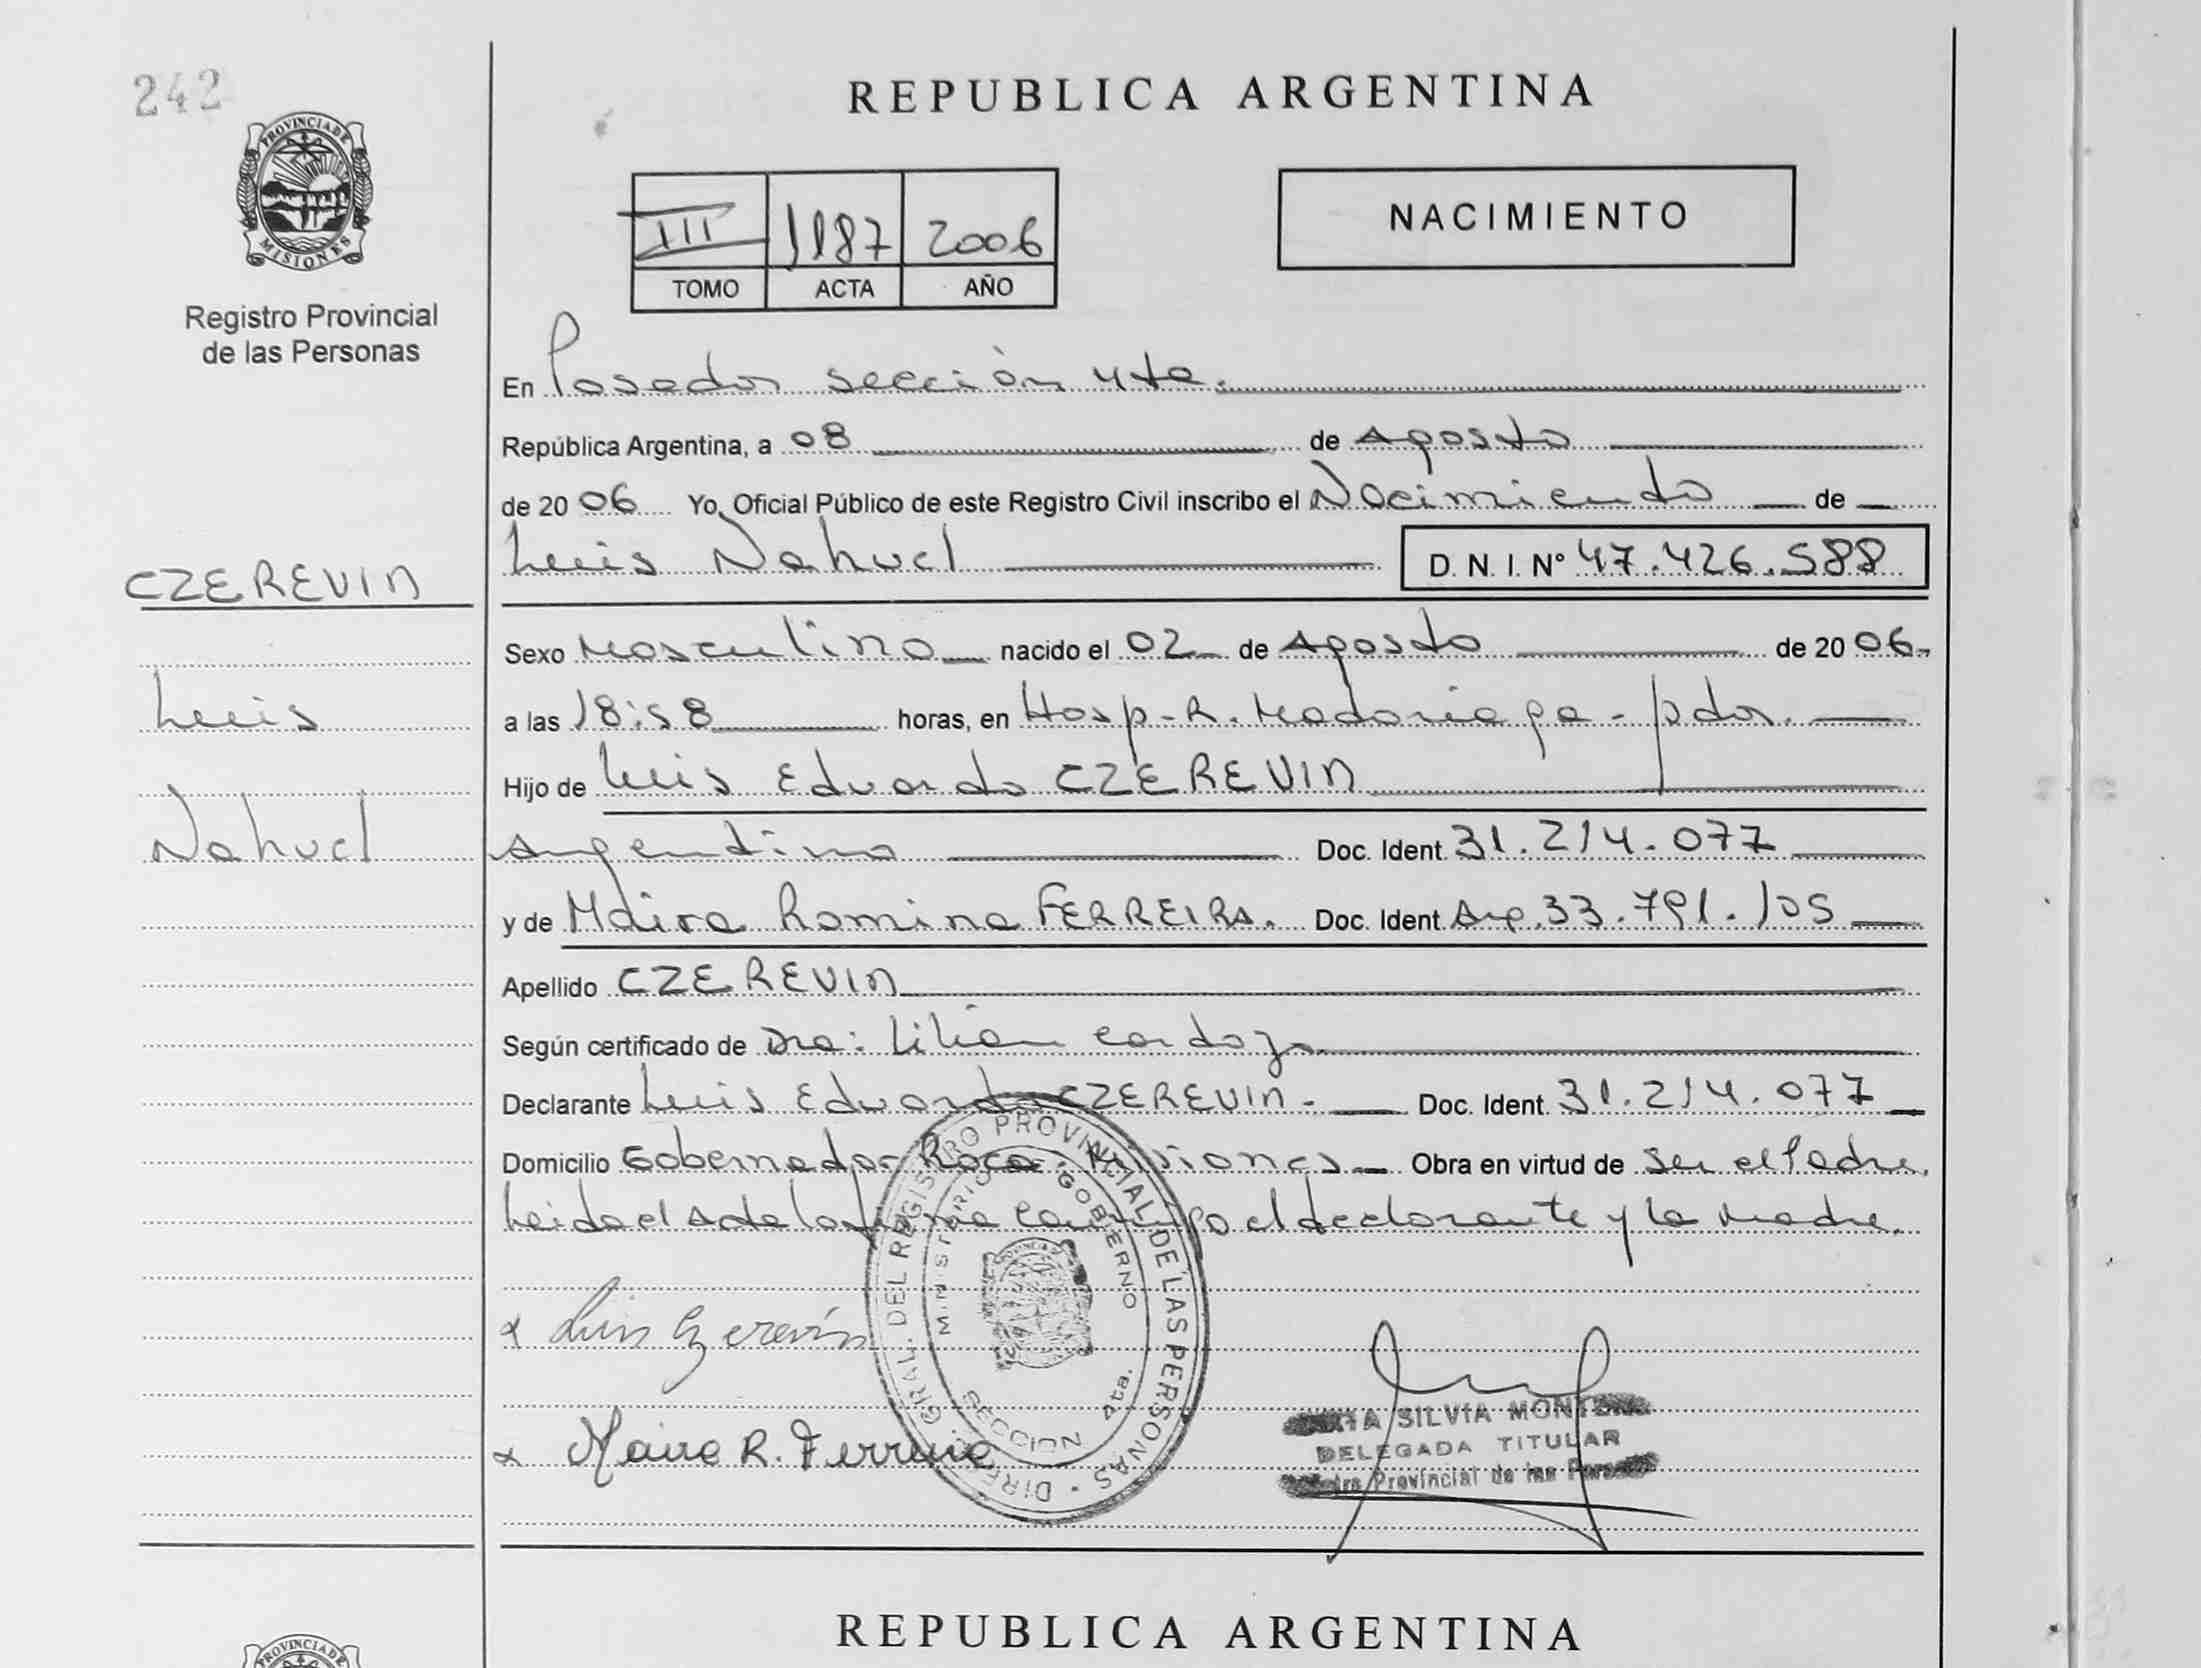 242
REPUBLICA ARGENTINA
PROVINCIA DE MISIONES
Registro Provincial
de las Personas
III 1187 2006
TOMO ACTA AÑO
NACIMIENTO
En Posadas sección 4ta.
República Argentina, a 08 de Agosto
de 2006 Yo, Oficial Público de este Registro Civil inscribo el Nacimiento de
Luis Nahuel D. N. I. Nº 47.426.588
CZEREVIN
Luis
Nahuel
Sexo Masculino nacido el 02 de Agosto de 2006.
a las 18:58 horas, en Hosp. R. Madariaga - pdas.
Hijo de Luis Eduardo CZEREVIN
Argentino Doc. Ident. 31.214.077
y de Maira Romina FERREIRA. Doc. Ident. Arg. 33.791.105
Apellido CZEREVIN
Según certificado de Dra: Lilian Cardozo
Declarante Luis Eduardo CZEREVIN. Doc. Ident. 31.214.077
Domicilio Gobernador Roca - Misiones Obra en virtud de ser el Padre.
Leida el Acta la firma conmigo el declarante y la madre.
x Luis Czerevin
x Maira R. Ferreira
DIREC. GRAL. DEL REGISTRO PROVINCIAL DE LAS PERSONAS
MINISTERIO GOBIERNO
SECCION 4ta.
SILVIA
DELEGADA TITULAR
Provincial de las
REPUBLICA ARGENTINA
PROVINCIA DE